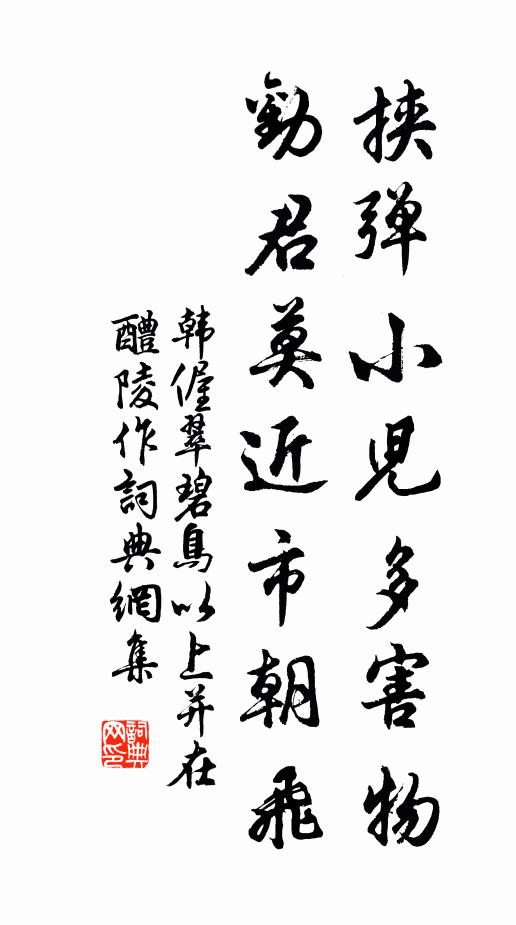 挾弹小児多害物
勸君莫近市朝飛
韩偓翠碧鳥以上并在
醴陵作詞典網集
詞典
网印